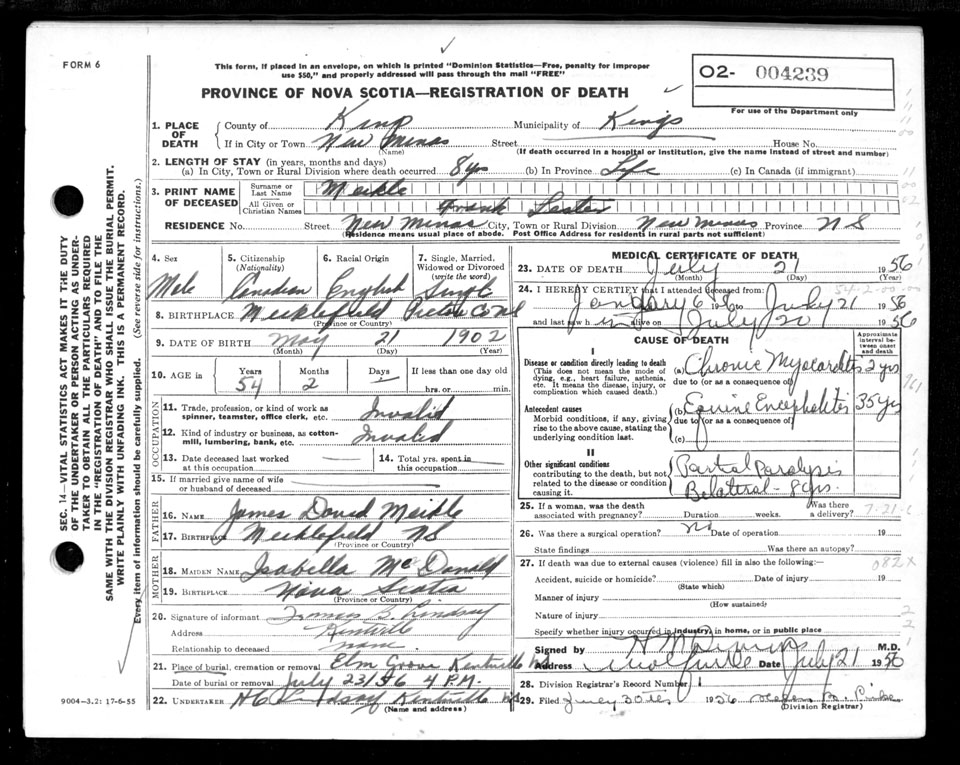 FORM 6
This form, if placed in an envelope, on which is printed "Dominion Statistics—Free, penalty for improper
use $50," and properly addressed will pass through the mail "FREE"
O2- 004239
For use of the Department only
PROVINCE OF NOVA SCOTIA—REGISTRATION OF DEATH
1. PLACE OF DEATH
County of King Municipality of Kings
If in City or Town New Minas Street House No.
(Name) (If death occurred in a hospital or institution, give the name instead of street and number)
2. LENGTH OF STAY (in years, months and days)
(a) In City, Town or Rural Division where death occurred 8 yrs (b) In Province Life (c) In Canada (if immigrant)
3. PRINT NAME OF DECEASED
Surname or Last Name Meikle
All Given or Christian Names Frank Lester
RESIDENCE No. Street New Minas City, Town or Rural Division New Minas Province NS
(Residence means usual place of abode. Post Office Address for residents in rural parts not sufficient)
4. Sex Male
5. Citizenship (Nationality) Canadian
6. Racial Origin English
7. Single, Married, Widowed or Divorced (write the word) Single
8. BIRTHPLACE Meiklefield Pictou Co NS
(Province or Country)
9. DATE OF BIRTH May 21 1902
(Month) (Day) (Year)
10. AGE in Years 54 Months 2 Days If less than one day old hrs. or min.
OCCUPATION
11. Trade, profession, or kind of work as spinner, teamster, office clerk, etc. Invalid
12. Kind of industry or business, as cotton-mill, lumbering, bank, etc. Invalid
13. Date deceased last worked at this occupation
14. Total yrs. spent in this occupation
15. If married give name of wife or husband of deceased
FATHER
16. NAME James David Meikle
17. BIRTHPLACE Meiklefield NS
(Province or Country)
MOTHER
18. MAIDEN NAME Isabella McDonald
19. BIRTHPLACE Nova Scotia
(Province or Country)
20. Signature of informant G. Lindsay
Address Kentville
Relationship to deceased none
21. Place of burial, cremation or removal Elm Grove Kentville NS
Date of burial or removal July 23/56 4 P.M.
22. UNDERTAKER H C Lindsay Kentville NS
(Name and address)
MEDICAL CERTIFICATE OF DEATH
23. DATE OF DEATH July 21 1956
(Month) (Day) (Year)
24. I HEREBY CERTIFY that I attended deceased from:
January 6 to July 21 1956
and last saw h im alive on July 20 1956
CAUSE OF DEATH
Approximate interval between onset and death
I
Disease or condition directly leading to death
(This does not mean the mode of dying, e.g., heart failure, asthenia, etc. It means the disease, injury, or complication which caused death.)
(a) Chronic Myocarditis 2 yrs
due to (or as a consequence of)
Antecedent causes
Morbid conditions, if any, giving rise to the above cause, stating the underlying condition last.
(b) Equine Encephalites 35 yrs
due to (or as a consequence of)
(c)
II
Other significant conditions
contributing to the death, but not related to the disease or condition causing it.
Partial Paralysis
Belateral - 8 yrs.
25. If a woman, was the death associated with pregnancy? Duration weeks. Was there a delivery?
26. Was there a surgical operation? No Date of operation 19
State findings Was there an autopsy?
27. If death was due to external causes (violence) fill in also the following:
082X
Accident, suicide or homicide? Date of injury 19
(State which)
Manner of injury
(How sustained)
Nature of injury
Specify whether injury occurred in industry, in home, or in public place
Signed by M.D.
Address Wolfville Date July 21 1956
28. Division Registrar's Record Number
29. Filed 1956
(Division Registrar)
SEC. 14—VITAL STATISTICS ACT MAKES IT THE DUTY
OF THE UNDERTAKER OR PERSON ACTING AS UNDER-
TAKER TO OBTAIN ALL THE PARTICULARS REQUIRED
IN THE "REGISTRATION OF DEATH" AND TO FILE THE
SAME WITH THE DIVISION REGISTRAR WHO SHALL ISSUE THE BURIAL PERMIT.
WRITE PLAINLY WITH UNFADING INK. THIS IS A PERMANENT RECORD.
Every item of information should be carefully supplied. (See reverse side for instructions.)
9004-3.2: 17-6-55